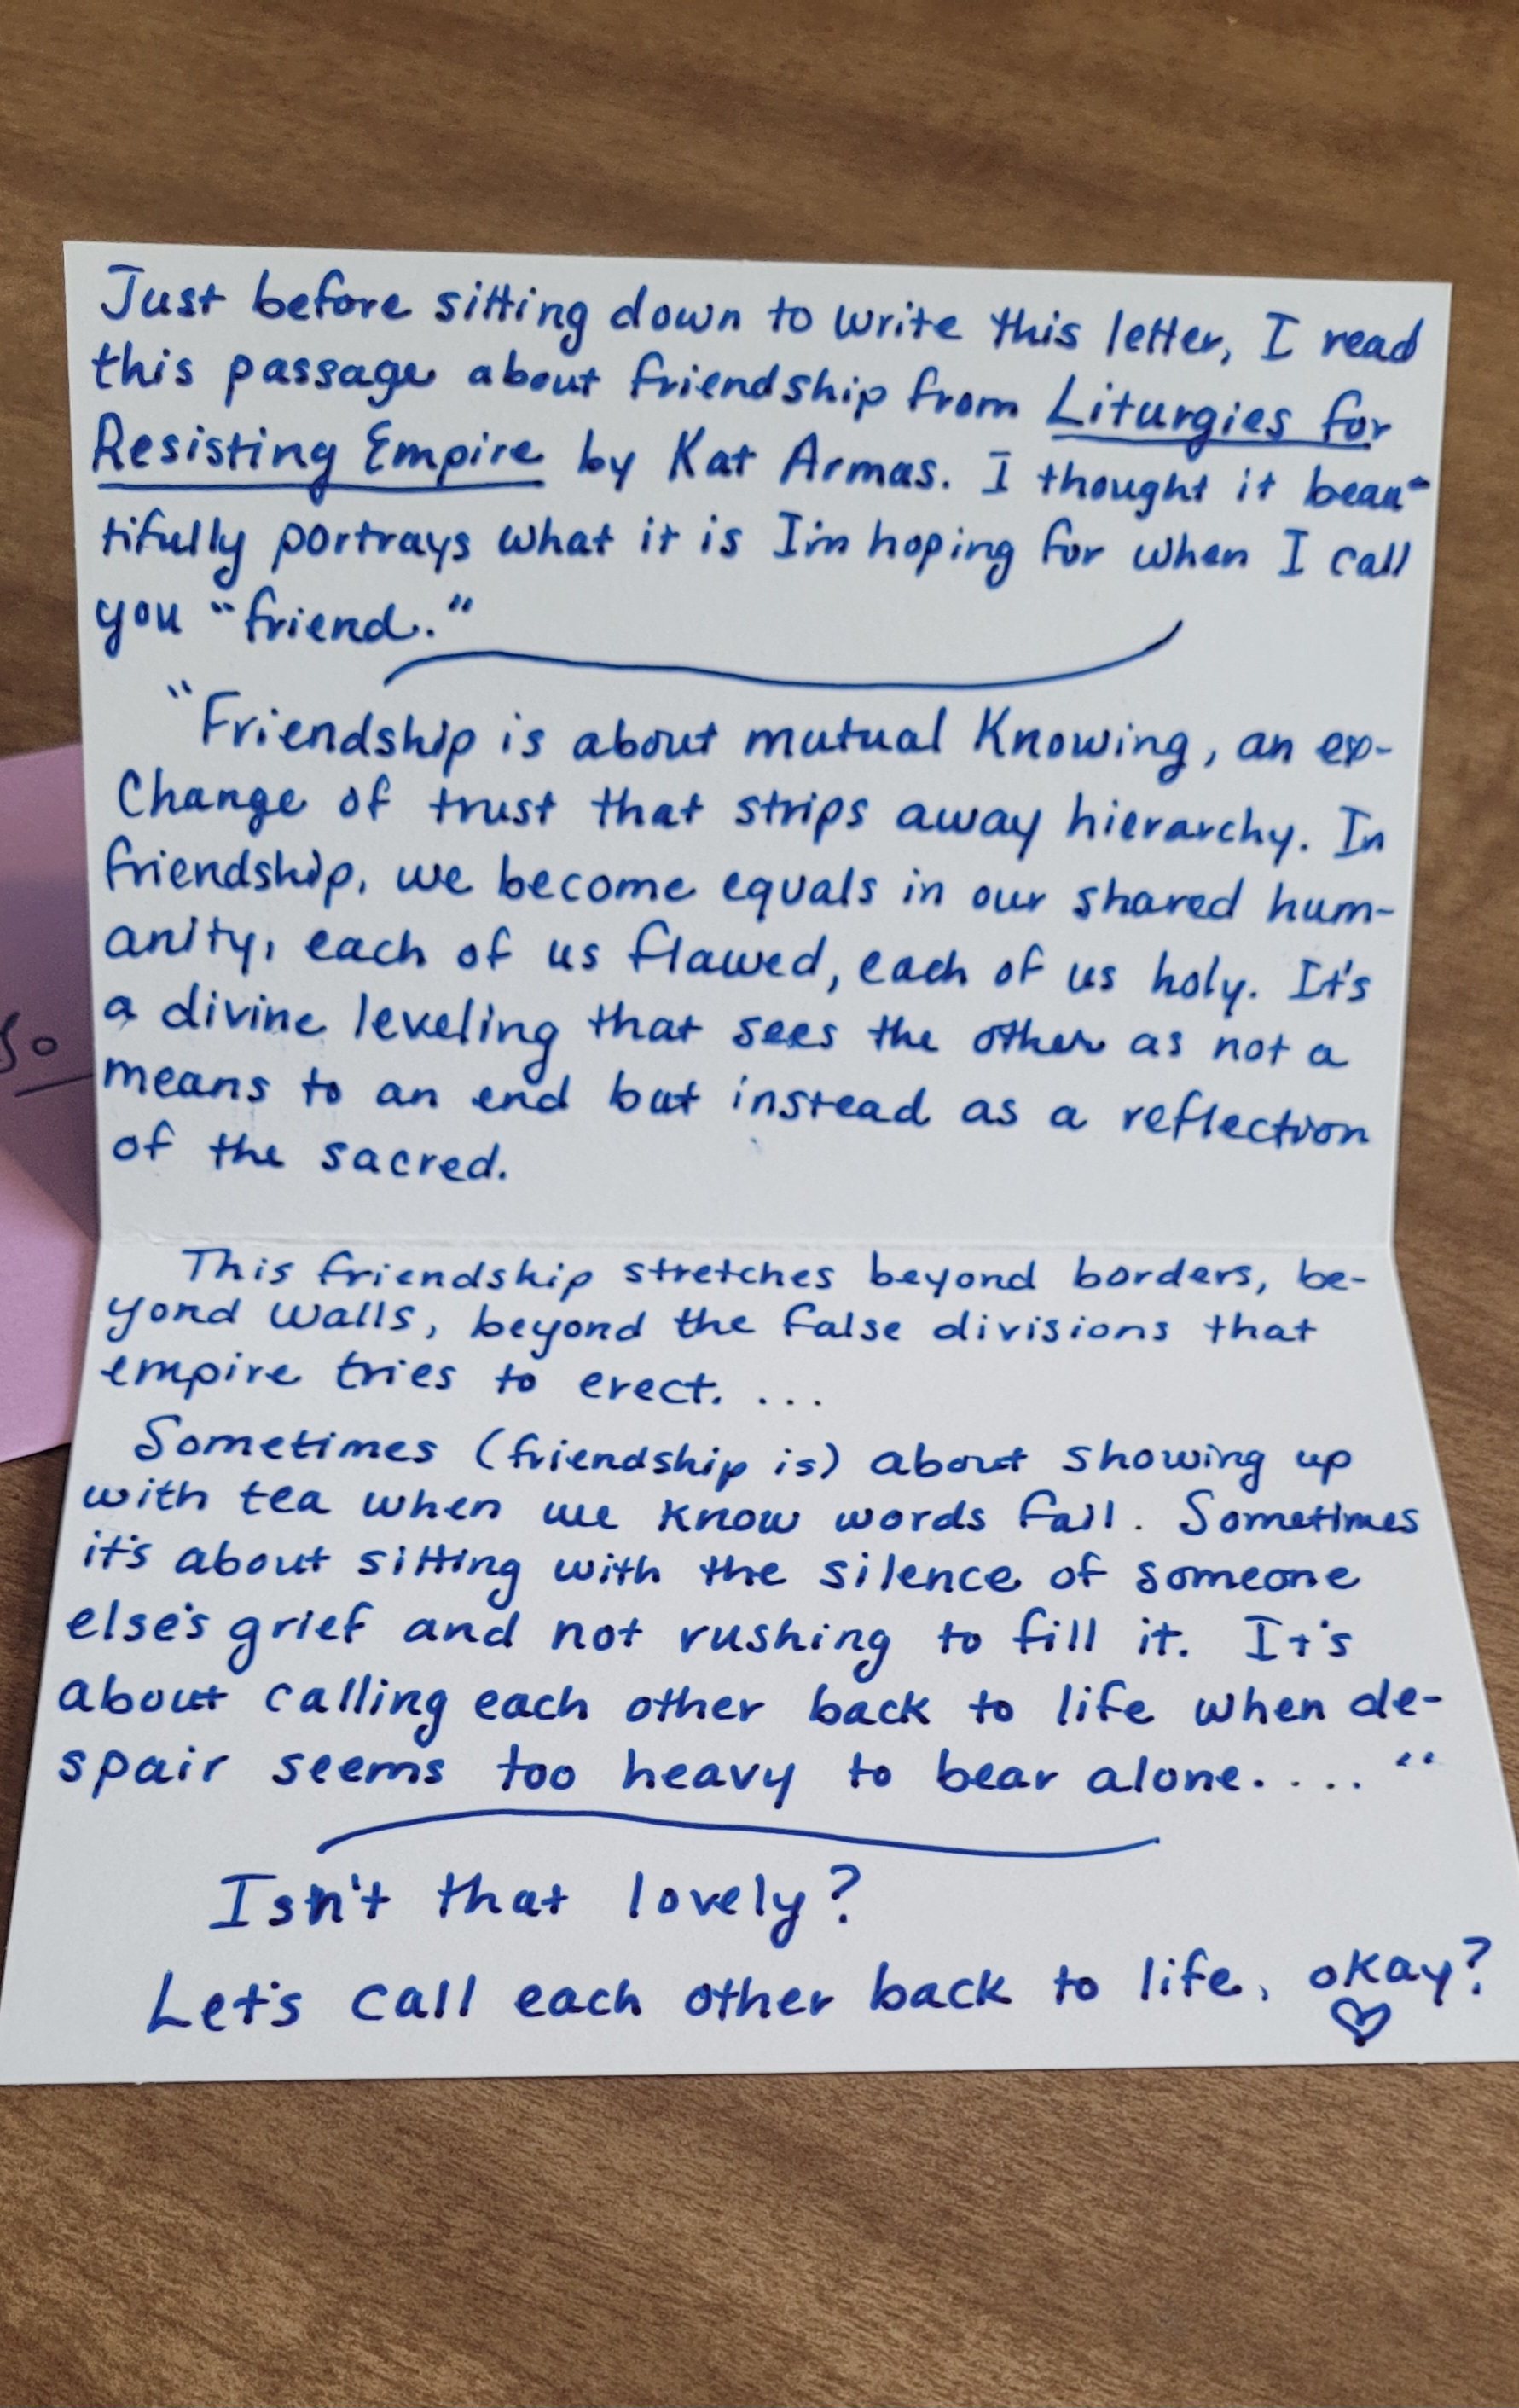 Just before sitting down to write this letter, I read
this passage about friendship from Liturgies for
Resisting Empire by Kat Armas. I thought it beau-
tifully portrays what it is I'm hoping for when I call
you "friend."
"Friendship is about mutual Knowing, an ex-
change of trust that strips away hierarchy. In
friendship, we become equals in our shared hum-
anity, each of us flawed, each of us holy. It's
a divine leveling that sees the other as not a
means to an end but instead as a reflection
of the sacred.
This friendship stretches beyond borders, be-
yond walls, beyond the false divisions that
empire tries to erect. ...
Sometimes (friendship is) about showing up
with tea when we know words fail. Sometimes
it's about sitting with the silence of someone
else's grief and not rushing to fill it. It's
about calling each other back to life when de-
spair seems too heavy to bear alone...."
Isn't that lovely?
Let's call each other back to life, okay?